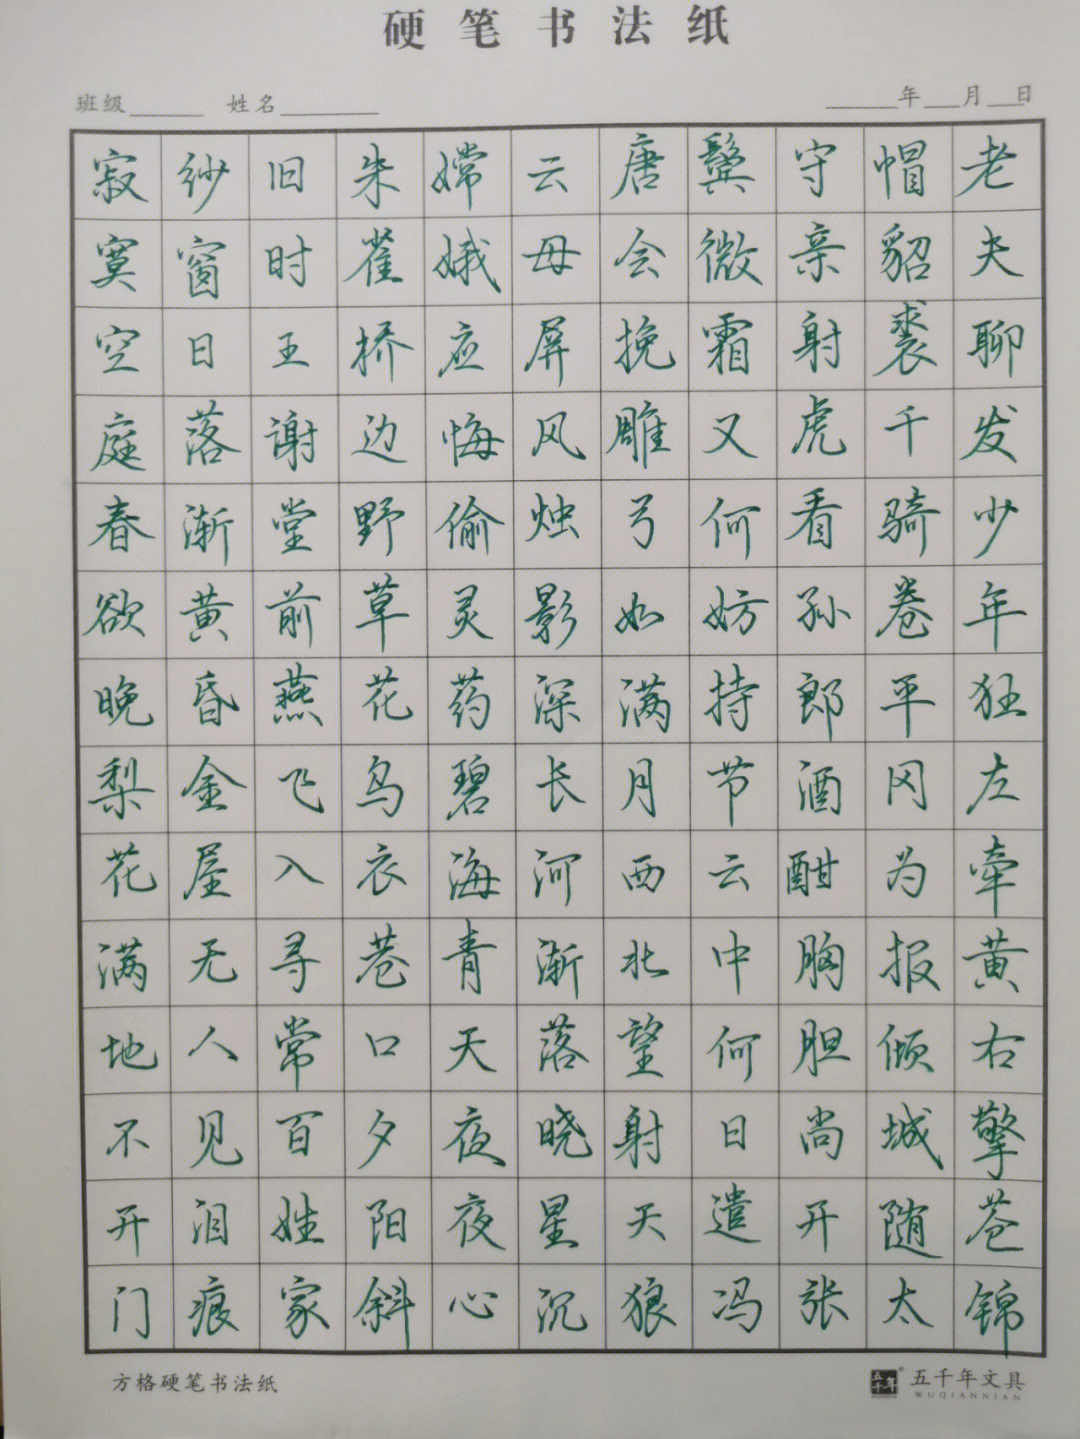 硬笔书法纸
班级 姓名 年 月 日
老夫聊发少年狂左牵黄右擎苍锦
帽貂裘千骑卷平冈为报倾城随太
守亲射虎看孙郎酒酣胸胆尚开张
鬓微霜又何妨持节云中何日遣冯
唐会挽雕弓如满月西北望射天狼
云母屏风烛影深长河渐落晓星沉
嫦娥应悔偷灵药碧海青天夜夜心
朱雀桥边野草花乌衣巷口夕阳斜
旧时王谢堂前燕飞入寻常百姓家
纱窗日落渐黄昏金屋无人见泪痕
寂寞空庭春欲晚梨花满地不开门
方格硬笔书法纸
五千年文具
WUQIANNIAN